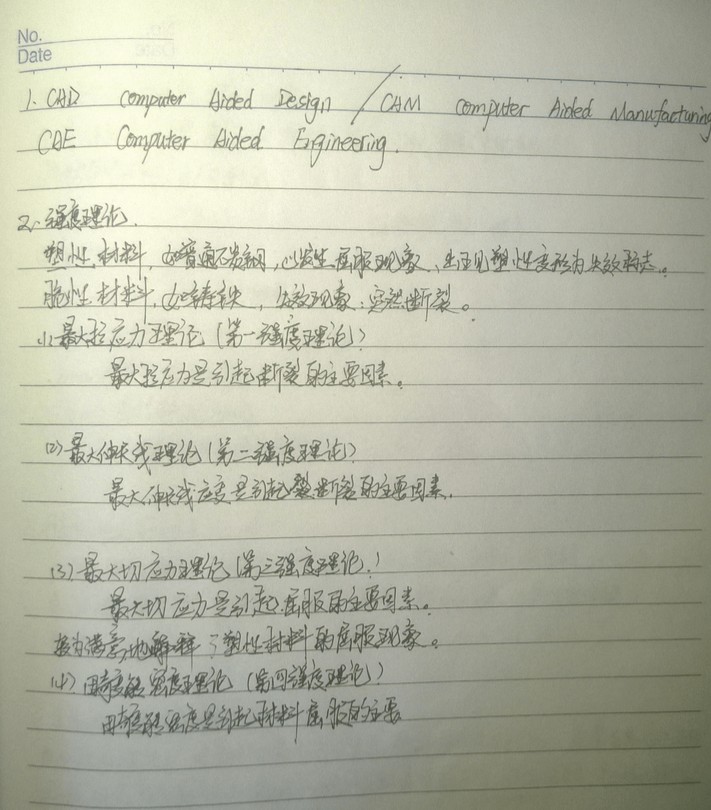 No.
Date
1. CAD Computer Aided Design / CAM computer Aided Manufacturing
CAE Computer Aided Engineering.
2. 强度理论.
塑性材料, 如普通碳钢, 以发生屈服现象、出现塑性变形为失效标志。
脆性材料, 如铸铁, 失效现象: 突然断裂。
(1) 最大拉应力理论 (第一强度理论)
最大拉应力是引起断裂的主要因素。
(2) 最大伸长线理论 (第二强度理论)
最大伸长线应变是引起断裂的主要因素.
(3) 最大切应力理论 (第三强度理论)
最大切应力是引起屈服的主要因素。
较为满意地解释了塑性材料的屈服现象。
(4) 畸变能密度理论 (第四强度理论)
畸变能密度是引起材料屈服的主要